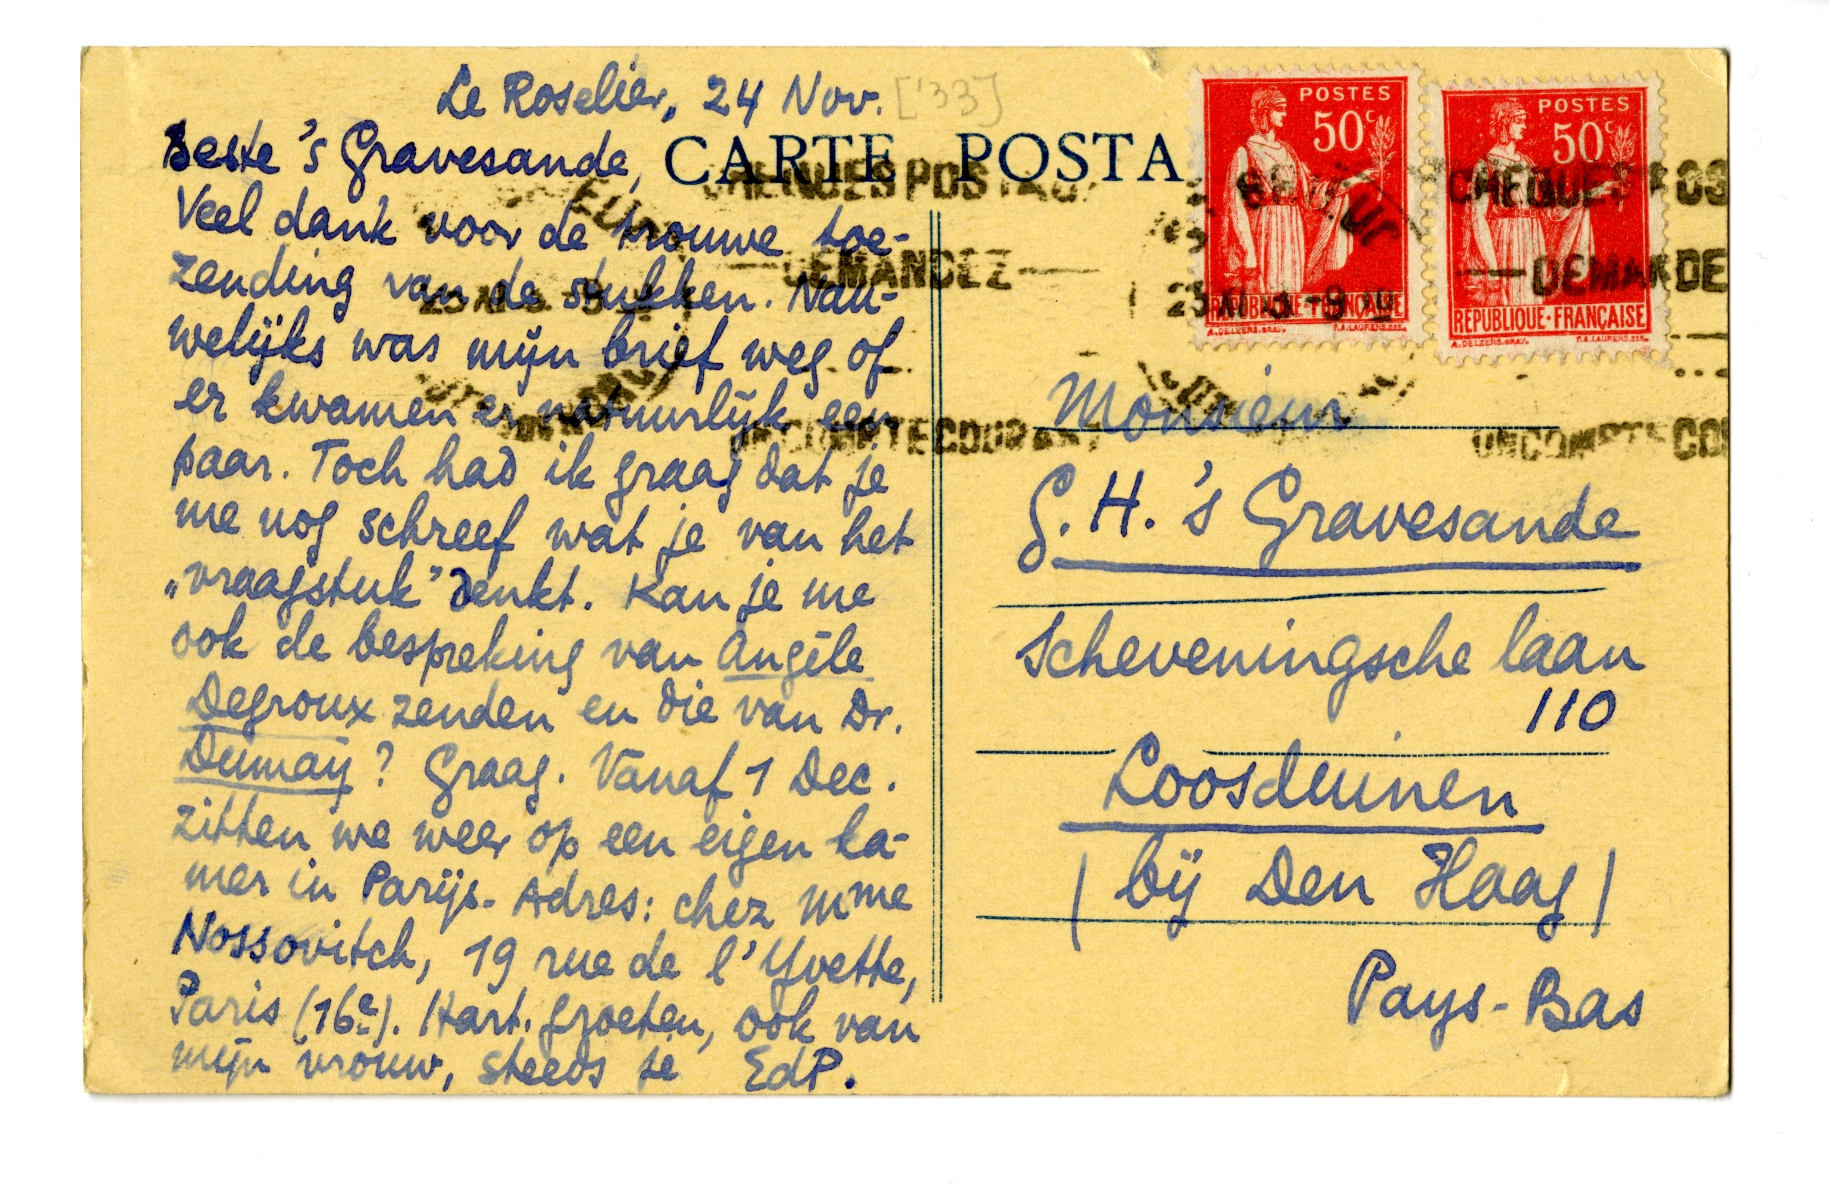 Le Roselier, 24 Nov. ['33]
Beste 's Gravesande,
Veel dank voor de trouwe toe-
zending van de stukken. Nau-
welijks was mijn brief weg of
er kwamen er natuurlijk een
paar. Toch had ik graag dat je
me nog schreef wat je van het
„vraagstuk” denkt. Kan je me
ook de bespreking van Angèle
Degroux zenden en die van Dr.
Dumay? Graag. Vanaf 1 Dec.
zitten we weer op een eigen ka-
mer in Parijs. Adres: chez Mme
Nossovitch, 19 rue de l'Yvette,
Paris (16e). Hart. groeten, ook van
mijn vrouw, steeds je EdP.
CARTE POSTA
CHEQUES POSTAUX
DEMANDEZ
UN COMPTE COURANT
POSTES
50c
REPUBLIQUE·FRANÇAISE
POSTES
50c
REPUBLIQUE·FRANÇAISE
CHEQUES POS
DEMANDE
UN COMPTE COU
Monsieur
G. H. 's Gravesande
Scheveningsche laan
110
Loosduinen
(bij Den Haag)
Pays-Bas